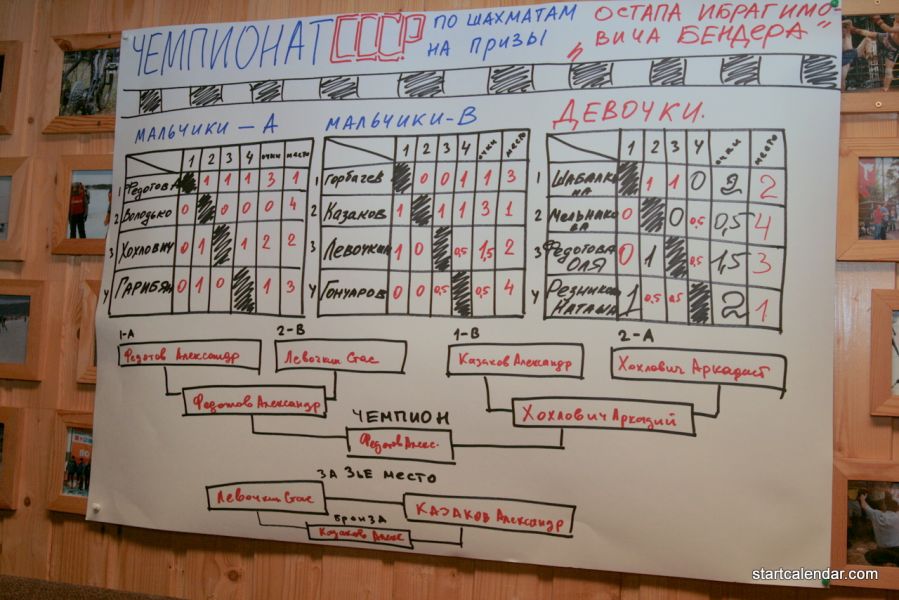 ЧЕМПИОНАТ СССР ПО ШАХМАТАМ НА ПРИЗЫ „ОСТАПА ИБРАГИМО-
ВИЧА БЕНДЕРА”
МАЛЬЧИКИ — А
1 2 3 4 очки место
1 Федотов А 1 1 1 3 1
2 Володько 0 0 0 0 4
3 Хохлович 0 1 1 2 2
4 Гарибян 0 1 0 1 3
МАЛЬЧИКИ-В
1 2 3 4 очки место
1 Горбачев 0 0 1 1 3
2 Казаков 1 1 1 3 1
3 Левочкин 1 0 0,5 1,5 2
4 Гончаров 0 0 0,5 0,5 4
ДЕВОЧКИ.
1 2 3 4 очки место
1 Шабалкина 1 1 0 2 2
2 Мельникова 0 0 0,5 0,5 4
3 Федотова Оля 0 1 0,5 1,5 3
4 Резникова Наташа 1 0,5 0,5 2 1
1-А 2-В 1-В 2-А
Федотов Александр Левочкин Стас Казаков Александр Хохлович Аркадий
Федотов Александр Хохлович Аркадий
ЧЕМПИОН
Федотов Алекс.
ЗА 3ье МЕСТО
Левочкин Стас КАЗАКОВ Александр
БРОНЗА
Казаков Алекс
startcalendar.com